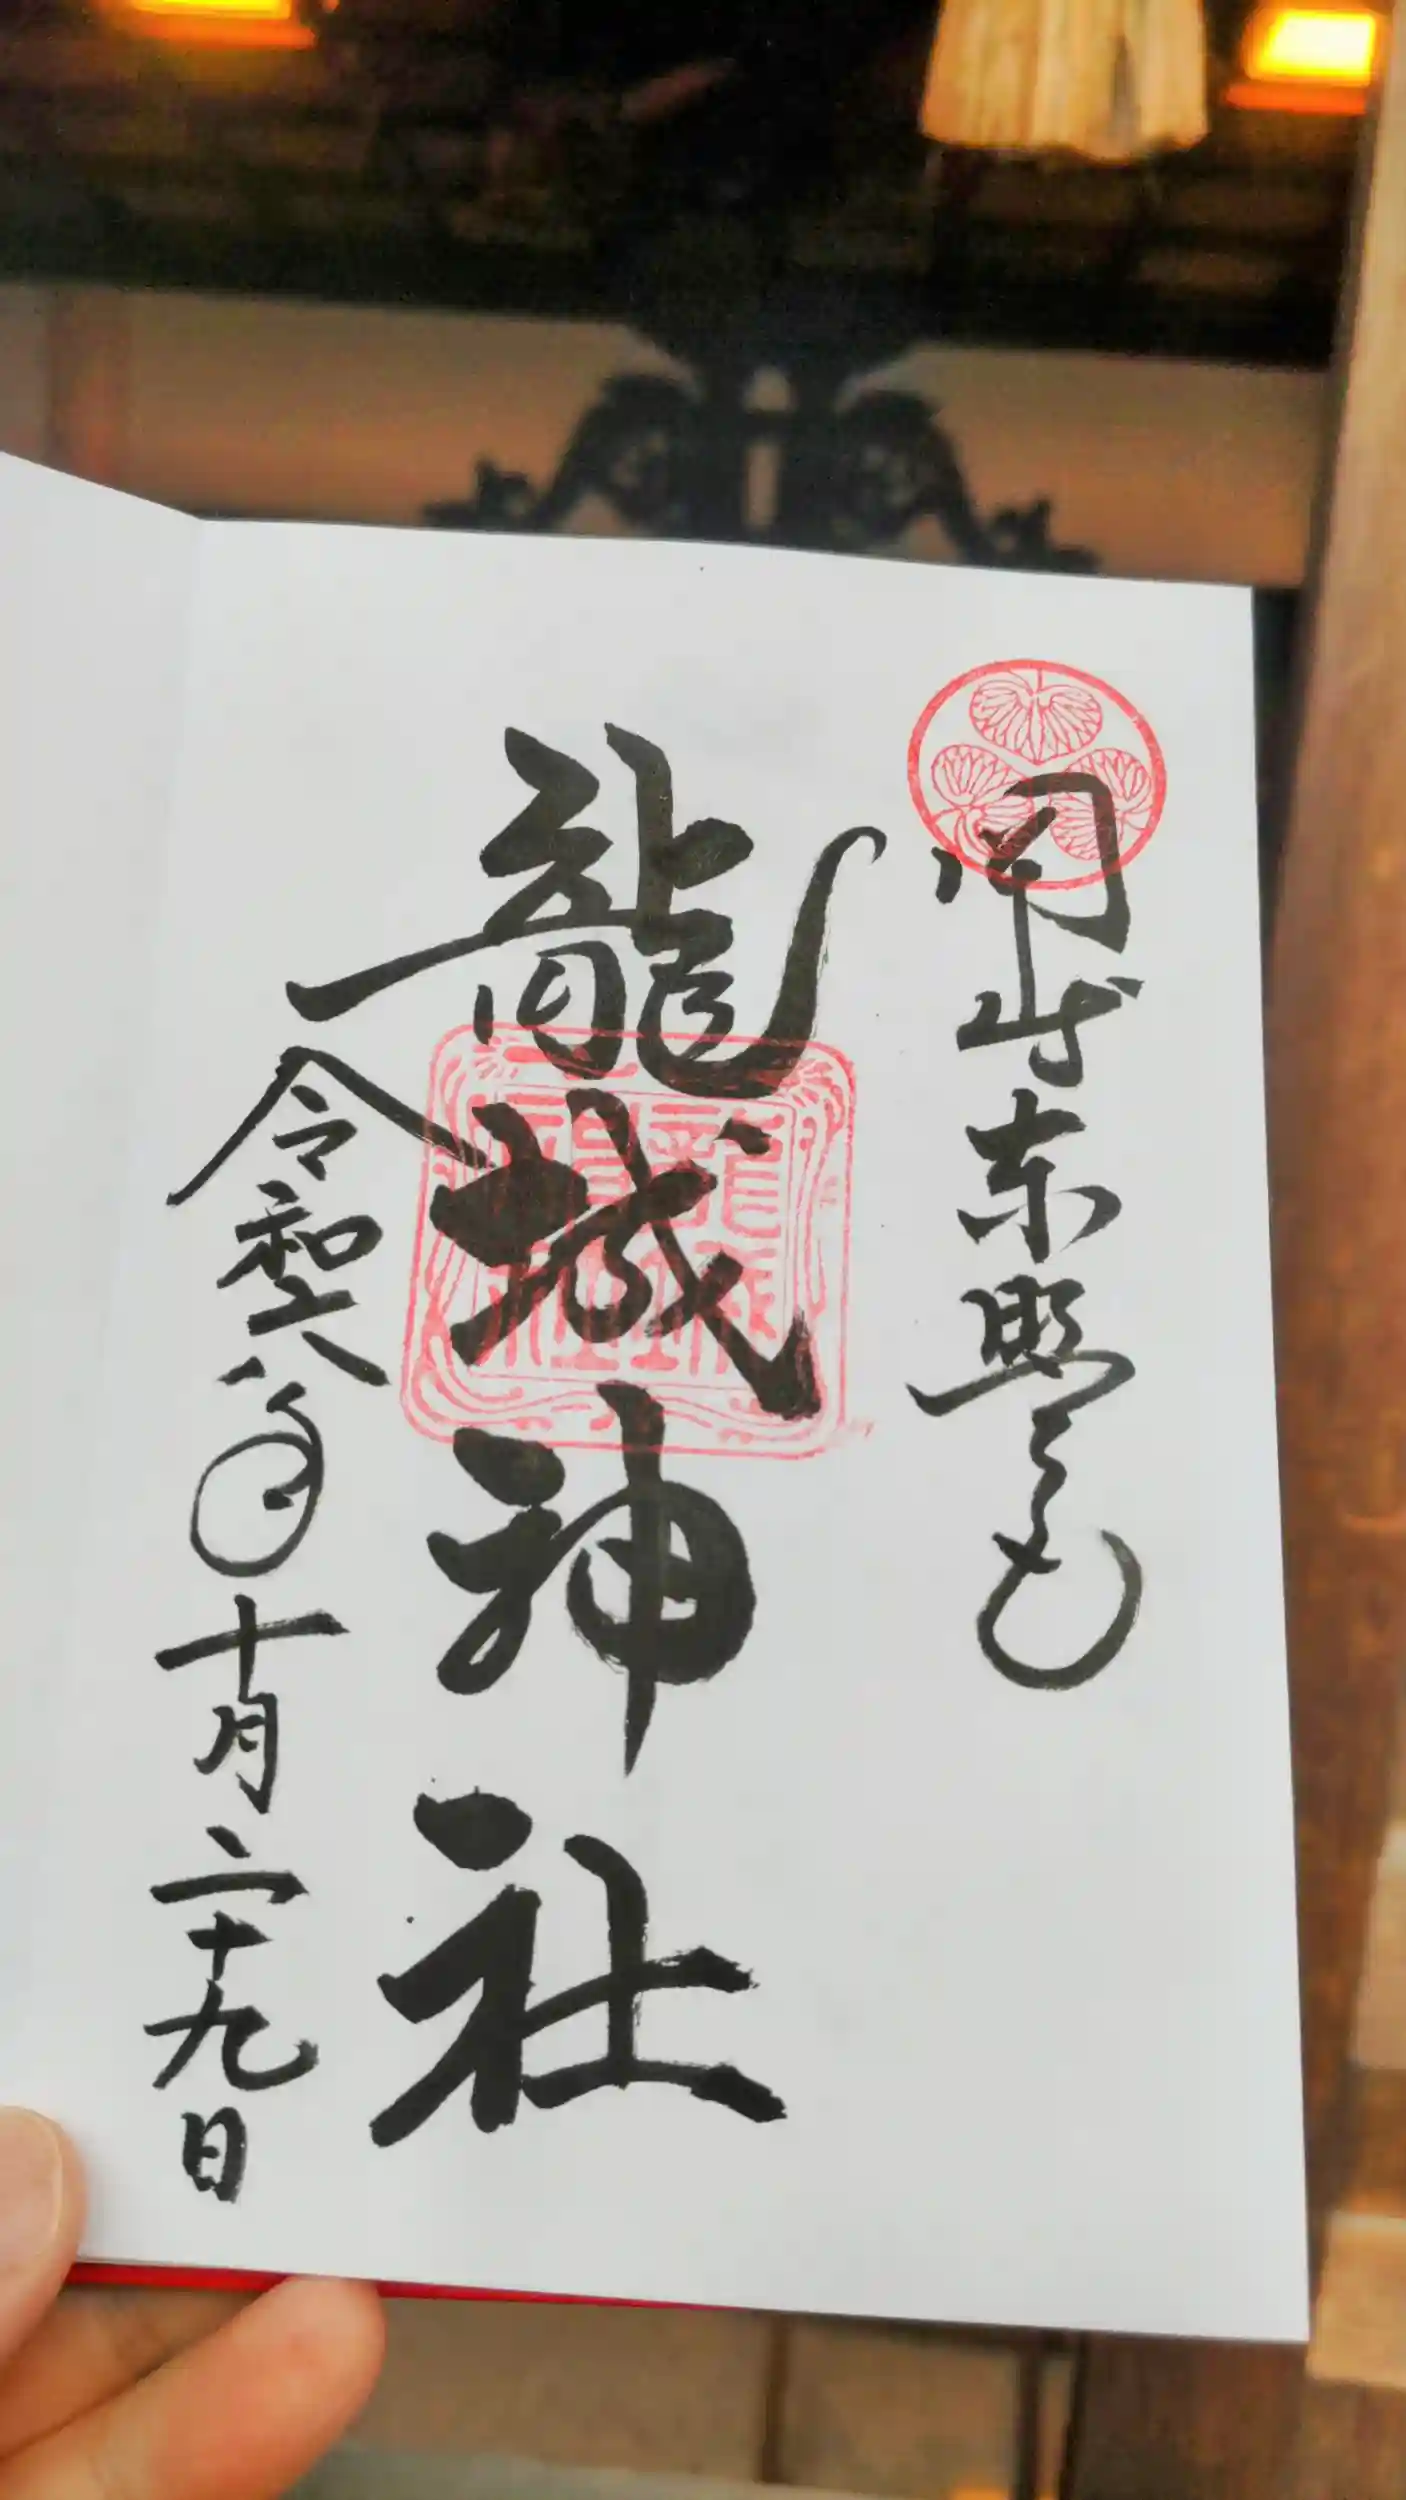 岡崎東照宮
龍城神社
令和六年十月二十九日